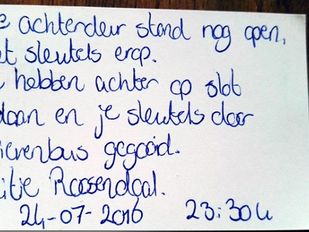 achterdeur stond nog open,
sleutels erop.
hebben achter op slot
en je sleutels door
gegooid.
Roosendaal.
24-07-2016 23:30u